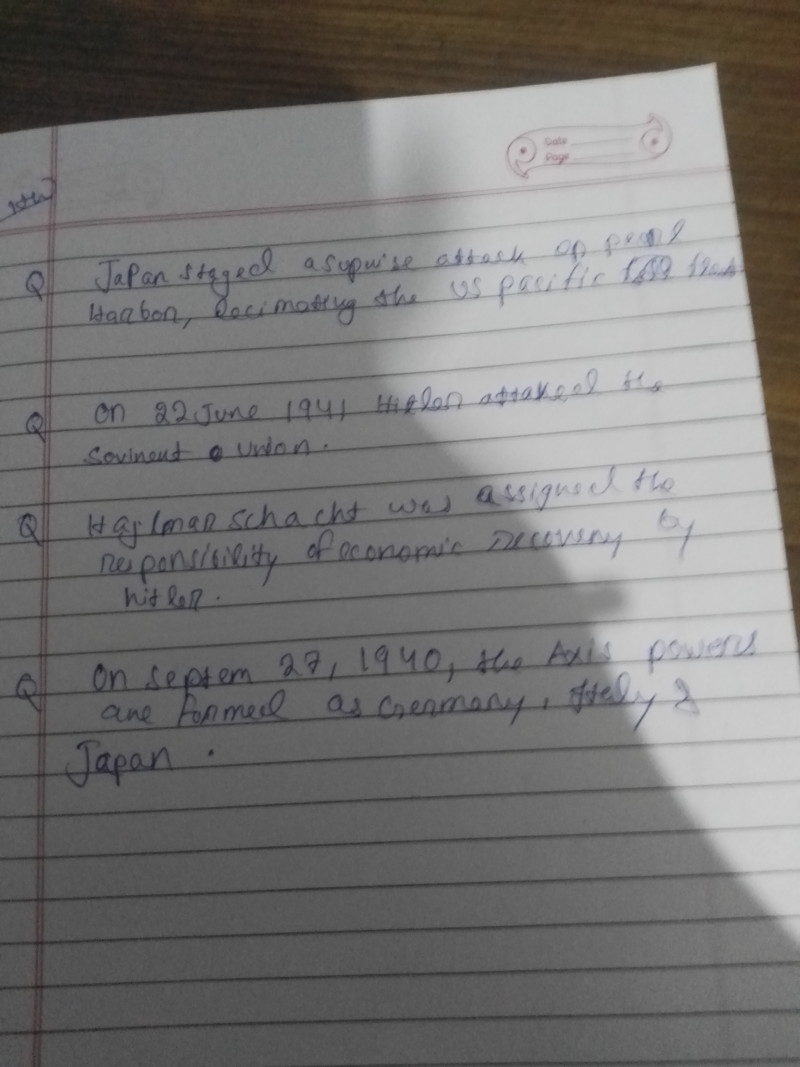 Date
Page
Q Japan staged a supwise attack op pearl
Haabon, Decimating the US pacific
Q On 22 June 1941 Hitlen attaked the
Sovineut union.
Q Hajlman schacht was assigned the
responsibility of economic recovery by
hitlen.
Q On septem 27, 1940, the Axis powers
are formed as Germany, Itely &
Japan.